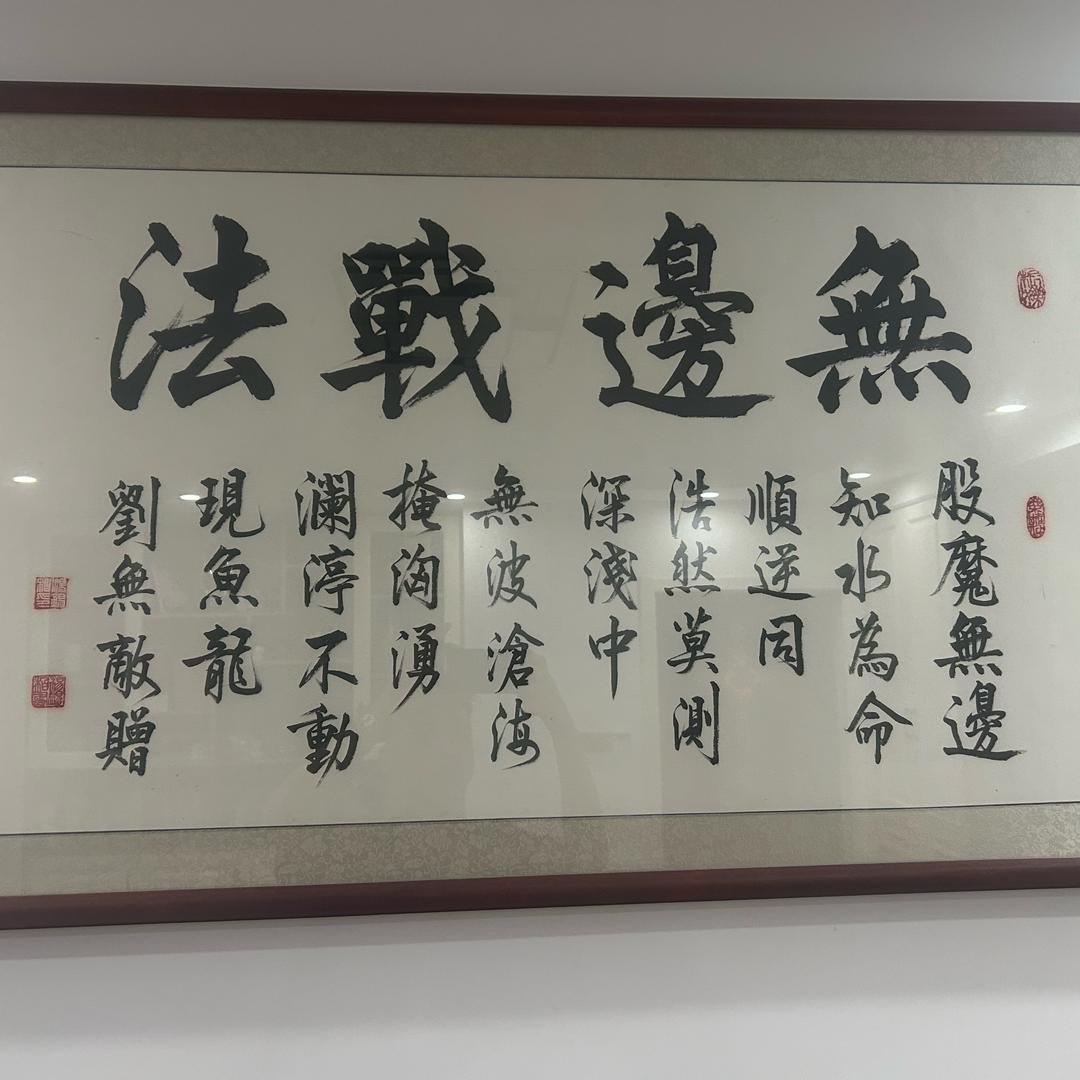 無邊戰法
股魔無邊
知水為命
順逆同
浩然莫測
深淺中
無波滄海
掩洶湧
瀾渟不動
現魚龍
劉無敵贈